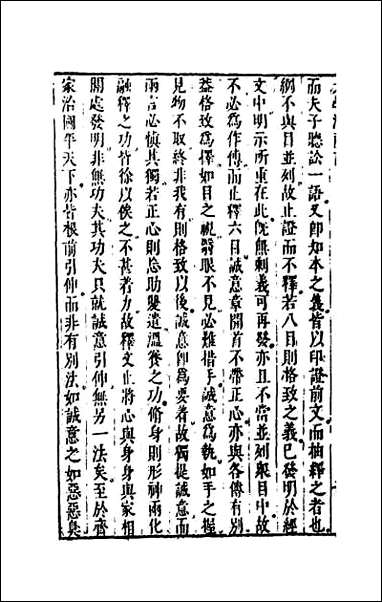 而夫子聽訟一語又卽知本之義皆以印證前文而抽釋之者也
綱不與目並列故止證而不釋若八目則格致之義已發明於經
文中明示所重在此旣無剩義可再發亦且不當並列眾目中故
不必爲作傳而止釋六目誠意章開首不帶正心亦與各傳有別
葢格致爲擇如目之視翳眼不見必難措手誠意爲執如手之握
見物不取終非我有則格致以後誠意卽爲要著故獨提誠意而
兩言必慎其獨若正心則忘助變遣溫養之功脩身則形神兩化
融釋之功皆徐以俟之不甚著力故釋文止將心與身身與家相
關處發明非無功夫其功夫只就誠意引伸無另一法矣至於齊
家治國平天下亦皆根前引伸而非有別法如誠意之如惡惡臭